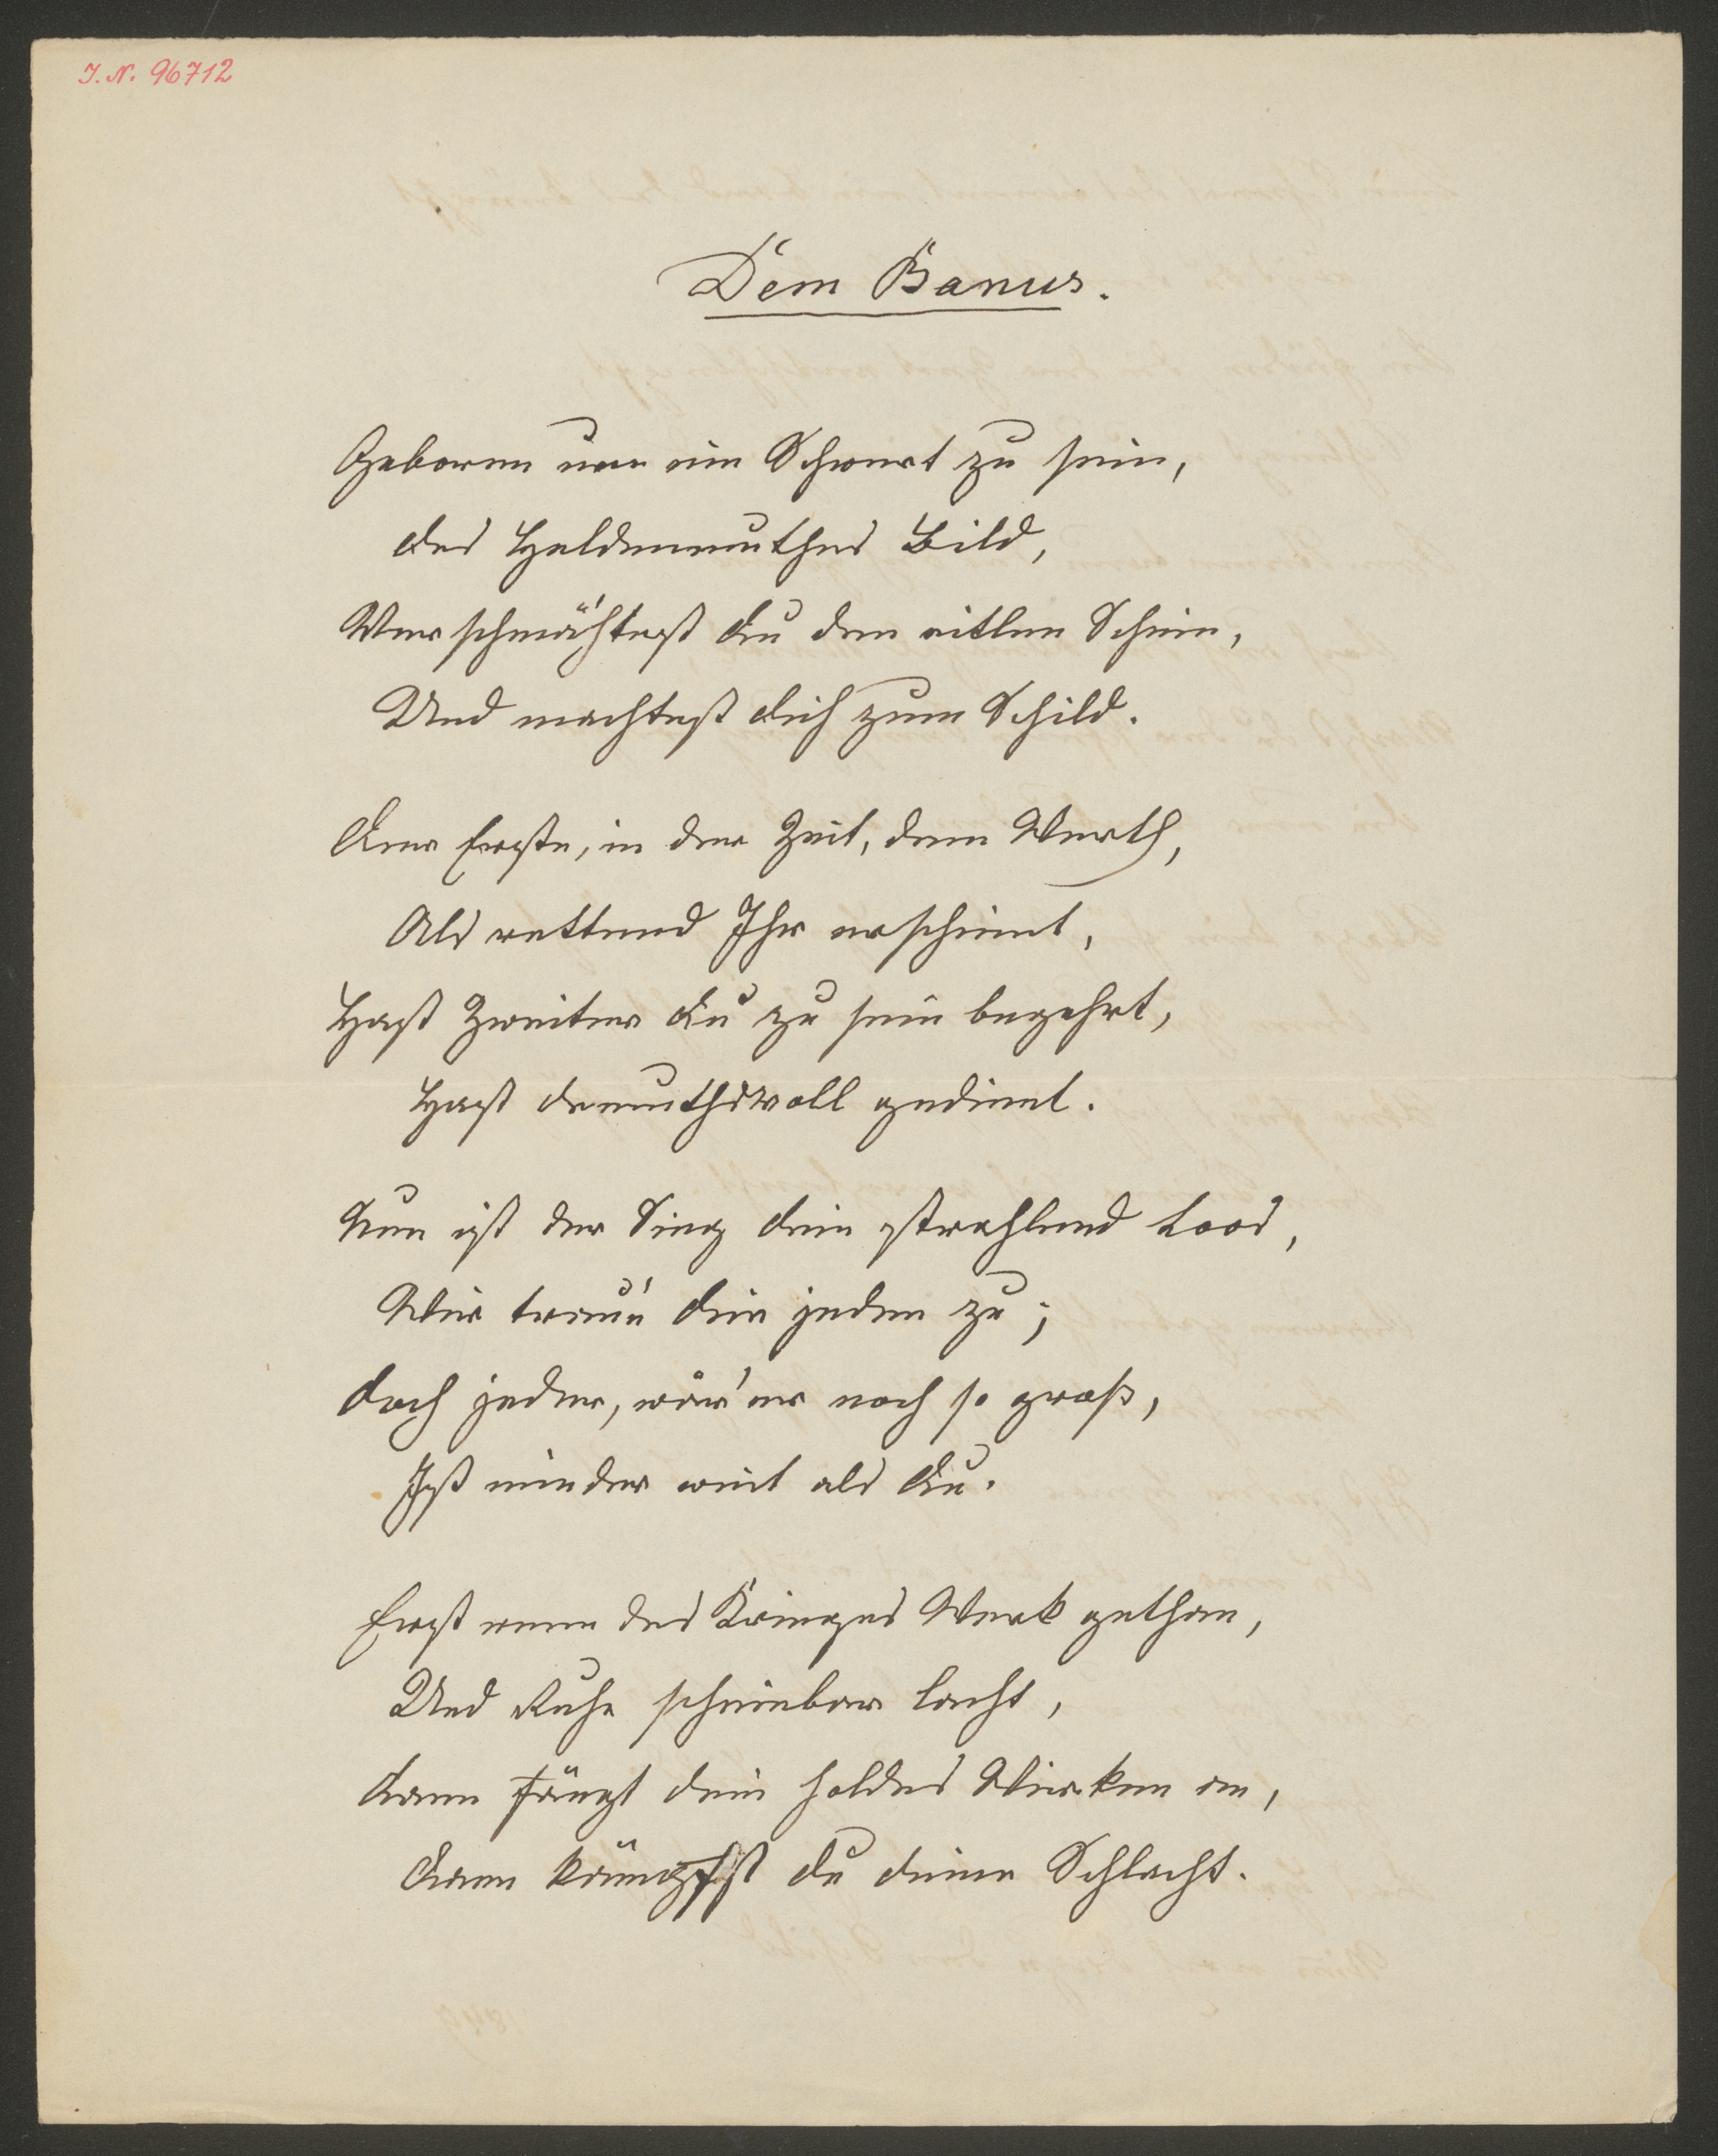 J. N. 96712
Dem Banus.
Geboren nur ein Schwert zu sein,
Des Heldenmuthes Bild,
Verschmähtest Du den eitlen Schein,
Und machtest dich zum Schild.
Der Erste, in der Zeit, dem Werth,
Als rettend Ihr erscheint,
Hast Zweiter Du zu sein begehrt,
Hast demuthsvoll gedient.
Nun ist der Sieg dein strahlend Loos,
Wir trau'n dir jeden zu;
Doch jeder, wär' er noch so groß,
Ist minder weit als Du.
Erst wenn des Krieges Werk gethan,
Und Ruhe scheinbar lacht,
Dann fängt dein holdes Wirken an,
Dann kämpfst du deine Schlacht.